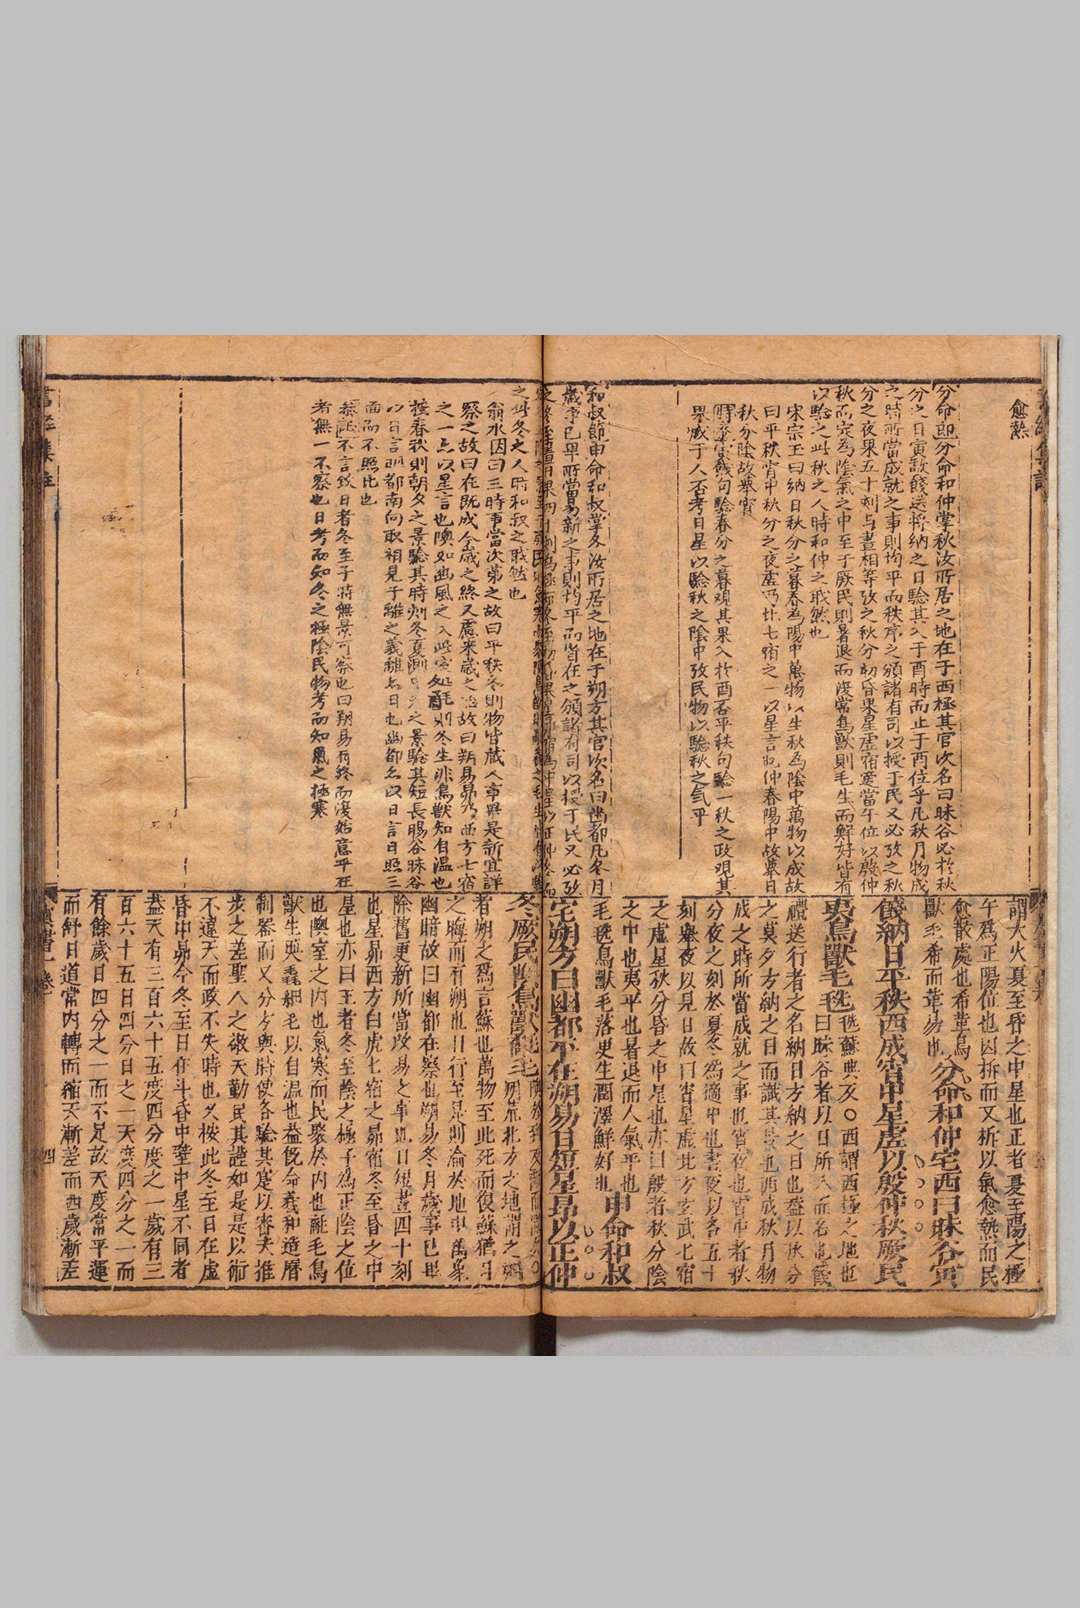 愈熱
分命即分命和仲掌秋汝所居之地在于西極其官次名曰昧谷必於秋
分之日寅敬餞送將納之日驗其入于酉時而止于酉位乎凡秋月物成
之時所當成就之事則均平而秩序之頒諸有司以授于民又必攷之秋
分之夜果五十刻与晝相等攷之秋分初昏果星虛宿當午位以殷仲
秋而定為陰氣之中至于厥民則暑退而度常鳥獸則毛生而鮮好皆有
以驗之此秋之人時和仲之職然也
宋宗玉曰納日秋分之暮春為陽中萬物以生秋為陰中萬物以成故
曰平秩宵中秋分之夜虛乃北七宿之一以星言也仲春陽中故舉日
秋分陰故舉宵
寅餞句驗春分之暮观其果入於酉否平秩句驗一秋之政观其
果咸于人否考日星以驗秋之陰中攷民物以驗秋之气平
和叔節申命和叔掌冬汝所居之地在于朔方其官次名曰幽都凡冬月
歲事已畢所當易新之事則均平而皆在之頒諸有司以授于民又必攷
之此冬之人時和叔之職然也
翁永因曰三時事當次第之故曰平秩冬則物皆藏人事畢是新宜詳
察之故曰在既成今歲之終又慮來歲之始故曰朔易昴乃西方七宿
之一亦以星言也隩如豳風之入此室處氄則冬生非鳥獸知自溫也
按春秋則朝夕之景驗其時刻冬夏測日之景驗其短長暘谷昧谷
以日言明都南向取相見于離之義雖名曰也幽都名以日言日照三
面而不照北也
者無一不察也日考而知冬之極陰民物考而知氣之極寒
謂大火夏至昏之中星也正者夏至陽之極
午為正陽位也因析而又析以氣愈熱而民
愈散處也希革鳥
獸毛希而革易也 分命和仲宅西曰昧谷寅
餞納日平秩西成宵中星虛以殷仲秋厥民
夷鳥獸毛毨 毨蘇典反○西謂西極之地也
曰昧谷者以日所入而名也餞
禮送行者之名納日方納之日也蓋以秋分
之莫夕方納之日而識其景也西成秋月物
成之時所當成就之事也宵夜也宵中者秋
分夜之刻於夏冬為適中也晝夜以各五十
刻舉夜以見日故曰宵星虛北方玄武七宿
之虛星秋分昏之中星也亦曰殷者秋分陰
之中也夷平也暑退而人氣平也
毛毨鳥獸毛落更生潤澤鮮好也 申命和叔
宅朔方曰幽都平在朔易日短星昴以正仲
冬厥民隩鳥獸氄毛
朔方北方之地謂之朔
者朔之為言蘇也萬物至此死而復蘇猶月
之晦而有朔也日行至是則淪於地中萬象
幽暗故曰幽都在察也朔易冬月歲事已畢
除舊更新所當改易之事也日短晝四十刻
也星昴西方白虎七宿之昴宿冬至昏之中
星也亦曰正者冬至陰之極子為正陰之位
也隩室之內也氣寒而民聚於內也氄毛鳥
獸生耎毳細毛以自溫也蓋既命羲和造曆
制器而又分方與時使各驗其實以審夫推
步之差聖人之敬天勤民其謹如是是以術
不違天而政不失時也又按此冬至日在虛
昏中昴今冬至日在斗昏中壁中星不同者
蓋天有三百六十五度四分度之一歲有三
百六十五日四分日之一天度四分之一而
有餘歲日四分之一而不足故天度常平運
而舒日道常內轉而縮天漸差而西歲漸差
書經集註
卷一
四